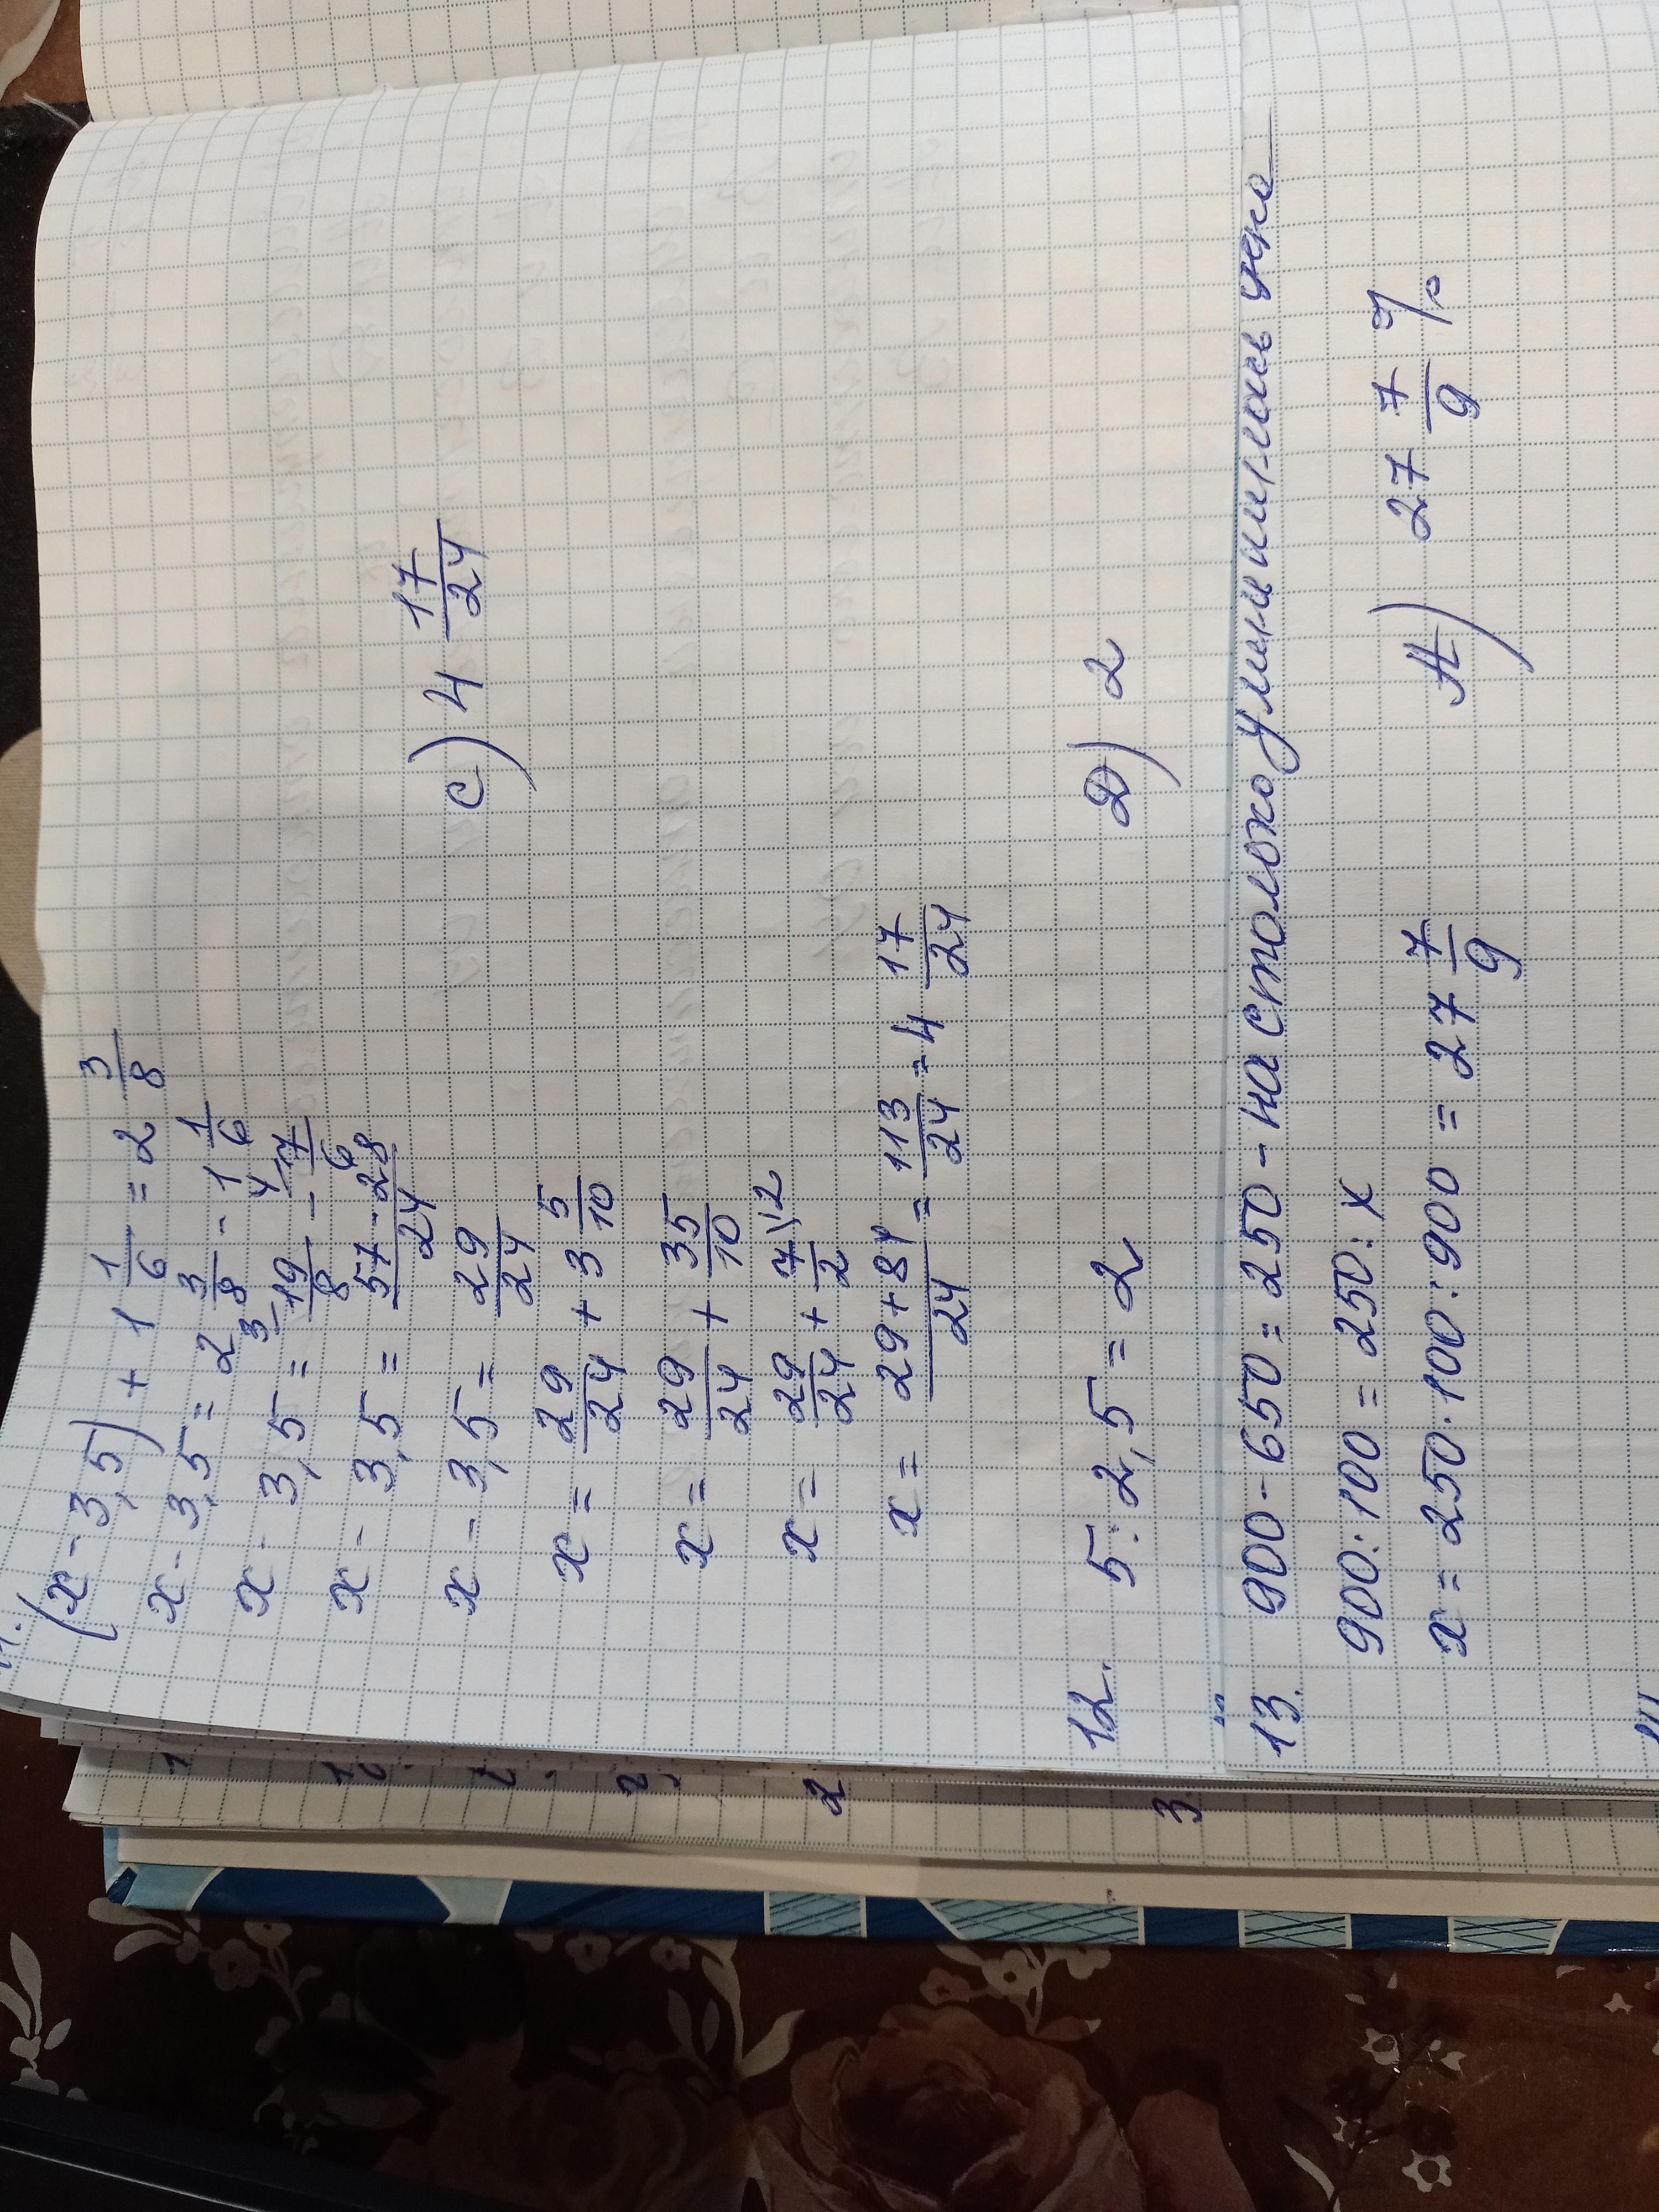 (x - 3,5) + 1 1/6 = 2 3/8
x - 3,5 = 2 3/8 - 1 1/6
x - 3,5 = 3/ 19/8 - 4/ 7/6
x - 3,5 = 57 - 28/24
x - 3,5 = 29/24
x = 29/24 + 3 5/10
x = 29/24 + 35/10
x = 29/24 + 7/2 \12
x = 29 + 84/24 = 113/24 = 4 17/24
C) 4 17/24
12. 5 : 2,5 = 2 D) 2
13. 900 - 650 = 250 - на столько уменьшилась цена
900 : 100 = 250 : x
x = 250 · 100 : 900 = 27 7/9 A) 27 7/9 %